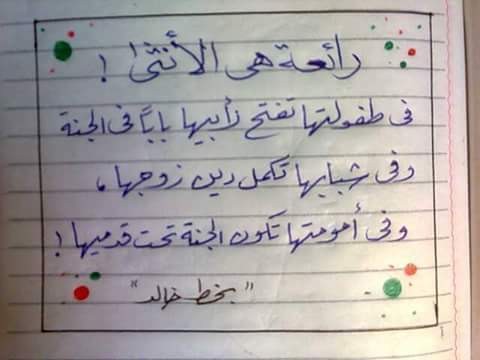 رائعة هى الأنثى !
فى طفولتها تفتح لأبيها بابًا فى الجنة
وفى شبابها تكمل دين زوجها ،
وفى أمومتها تكون الجنة تحت قدميها !
"بخط خالد"